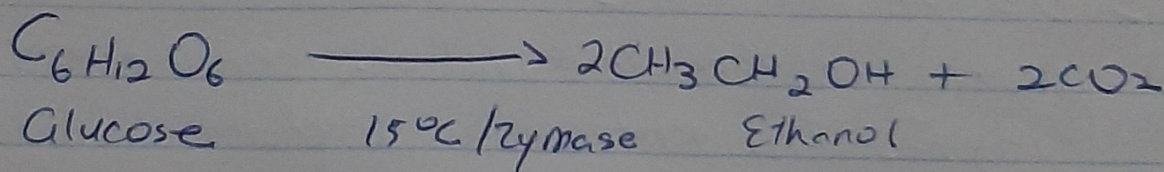 C₆H₁₂O₆ ⟶ 2CH₃CH₂OH + 2CO₂
Glucose 15°C/Zymase Ethanol